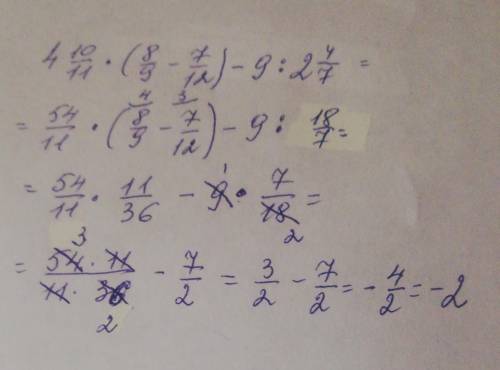 4 10/11 · (8/9 - 7/12) - 9 : 2 4/7 =
= 54/11 · (8/9 ⁴ - 7/12 ³) - 9 : 18/7 =
= 54/11 · 11/36 - 9 ¹ · 7/18 ₂ =
= 54 ³ · 11 / 11 · 36 ₂ - 7/2 = 3/2 - 7/2 = - 4/2 = - 2